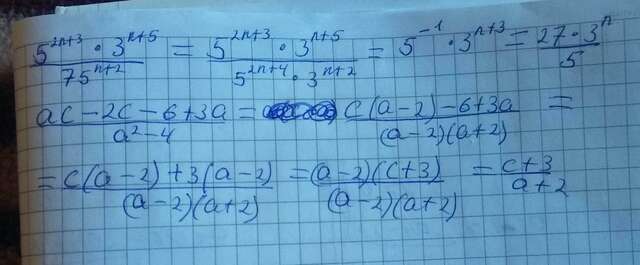 5^{2n+3} · 3^{n+5} / 75^{n+2} = 5^{2n+3} · 3^{n+5} / 5^{2n+4} · 3^{n+2} = 5^{-1} · 3^{n+3} = 27 · 3^n / 5
ac - 2c - 6 + 3a / a^2 - 4 = c(a - 2) - 6 + 3a / (a - 2)(a + 2) =
= c(a - 2) + 3(a - 2) / (a - 2)(a + 2) = (a - 2)(c + 3) / (a - 2)(a + 2) = c + 3 / a + 2